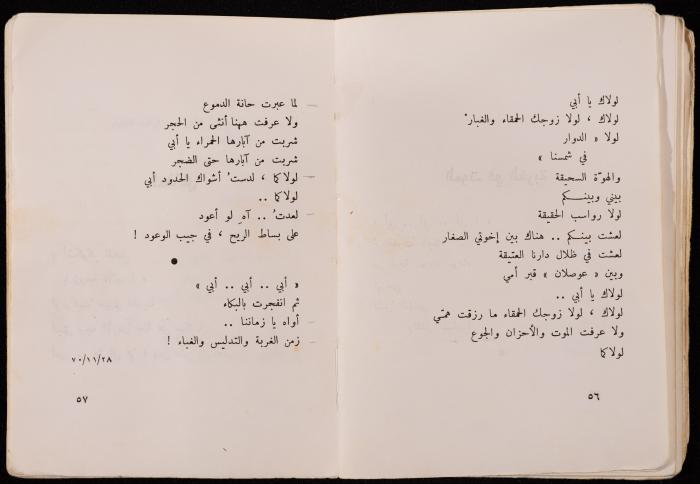 لولاك يا أبي
لولاك ، لولا زوجك الحمقاء والغبارْ
لولا « الدوار
في شمسنا »
والهوّة السحيقة
بيني وبينـــكم
لولا رواسب الحقيقة
لعشت بينـكم .. هناك بين إخوتي الصغار
لعشت في ظلال دارنا العتيقة
وبين « عوصلان » قبر أمي
لولاك يا أبي ..
لولاك ، لولا زوجك الحمقاء ما رزقت همّي
ولا عرفت الموت والأحزان والجوع
لولاكما
٥٦
لما عبرت حانة الدموع
ولا عرفت ههنا أنثى من الحجر
شربت من آبارها الحمراء يا أبي
شربت من آبارها حتى الضجر
لولاكما ، لدستُ أشواك الحدود أبي
لولاكما ..
لعدتُ .. آهِ لو أعود
على بساط الريح ، في جيب الوعود !
●
« أبي .. أبي .. أبي »
ثم انفجرت بالبكاء
أواه يا زماننا ..
زمن الغربة والتدليس والغباء !
٧٠/١١/٢٨
٥٧